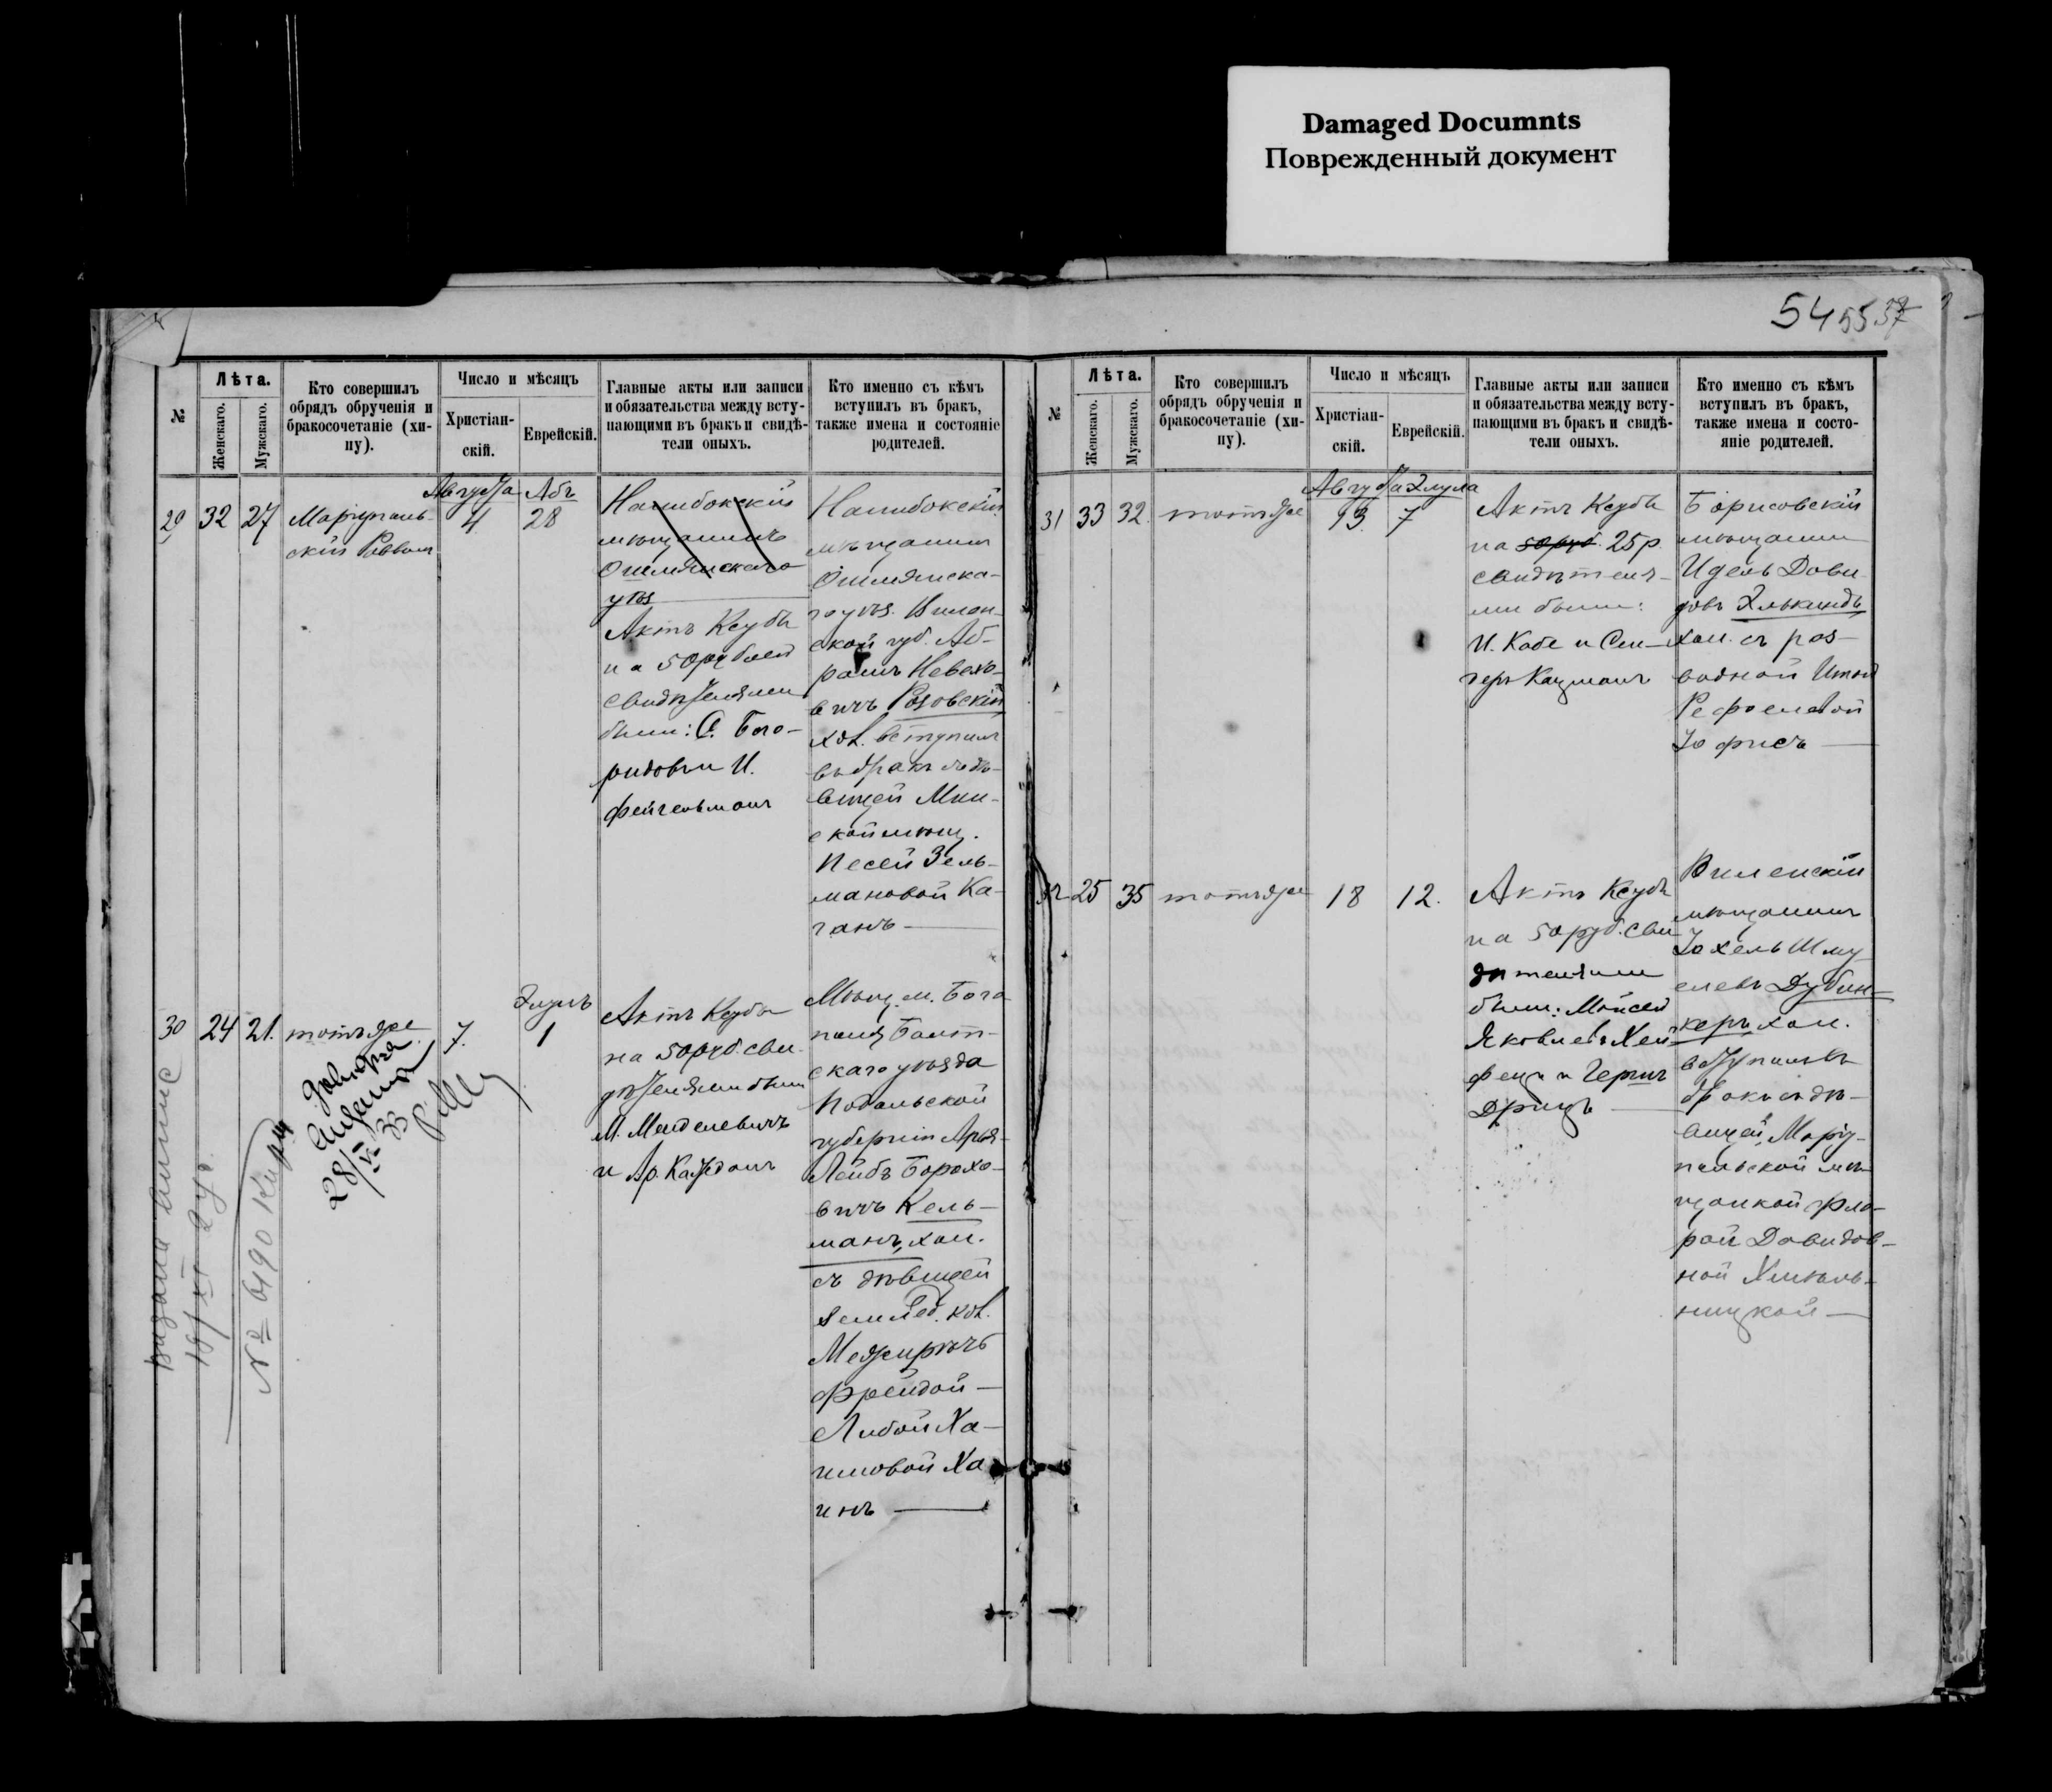 Damaged Documnts
Поврежденный документ
54 55 37
№
Лѣта.
Женскаго.
Мужскаго.
Кто совершилъ
обрядъ обрученія и
бракосочетаніе (хи-
пу).
Число и мѣсяцъ
Христіан-
скій.
Еврейскій.
Главные акты или записи
и обязательства между всту-
пающими въ бракъ и свидѣ-
тели оныхъ.
Кто именно съ кѣмъ
вступилъ въ бракъ,
также имена и состояніе
родителей.
29
32
27
Маріуполь-
скій Раввинъ
Августа
4
Абъ
28
Налибокскій
мѣщанинъ
Ошмянскаго
уѣз
Актъ Ксубы
на 50 рублей
свидѣтелями
были: С. Бого-
И.
Фейгельманъ
Налибокскій
мѣщанинъ
Ошмянска-
го уѣз. Вилен-
ской губ. Аб-
рамъ Невахо-
вичъ Розовскій
хол. вступилъ
въ бракъ съ дѣ-
вицей Мин-
ской мѣщ.
Песей Зель-
мановой Ка-
ганъ
30
24
21.
тотъ же
7.
Элулъ
1
Актъ Ксубы
на 50 руб. сви-
дѣтелями были
М. Менделевичъ
и Ар. Каждан
Мѣщ. м. Бого-
поля Балт-
скаго уѣзда
Подольской
губерніи Арья-
Лейбъ Борохо-
вичъ Кель-
манъ, хол.
съ дѣвицей
землед. кол.
Межирѣчъ
Фрейдой-
Либой Ха-
имовой Ха-
инъ
Выдана выпис
№ 6190
28/VI 33
№
Лѣта.
Женскаго.
Мужскаго.
Кто совершилъ
обрядъ обрученія и
бракосочетаніе (хи-
пу).
Число и мѣсяцъ
Христіан-
скій.
Еврейскій.
Главные акты или записи
и обязательства между всту-
пающими въ бракъ и свидѣ-
тели оныхъ.
Кто именно съ кѣмъ
вступилъ въ бракъ,
также имена и состо-
яніе родителей.
31
33
32.
тотъ же
Августа
13
Элула
7
Актъ Ксубы
на 50 руб. 25 р.
свидѣтеля-
ми были:
И. Кабе и Сен-
деръ Кацманъ
Борисовскій
мѣщанинъ
Идель Дови-
довъ Элькиндъ
хол. съ раз-
водной Итой
Рефоеловой
Іофисъ
32
25
35
тотъ же
18
12.
Актъ Ксубъ
на 50 руб. сви-
дѣтелями
были: Мойсей
Яковлевъ Хей-
фецъ и Герцъ
Дрицъ
Виленскій
мѣщанинъ
Іохель Шму-
елевъ Дубин-
керъ хол.
вступилъ въ
бракъ съ дѣ-
вицей, Маріу-
польской мѣ-
щанкой Фло-
рой Давидов-
ной Хмѣль-
ницкой